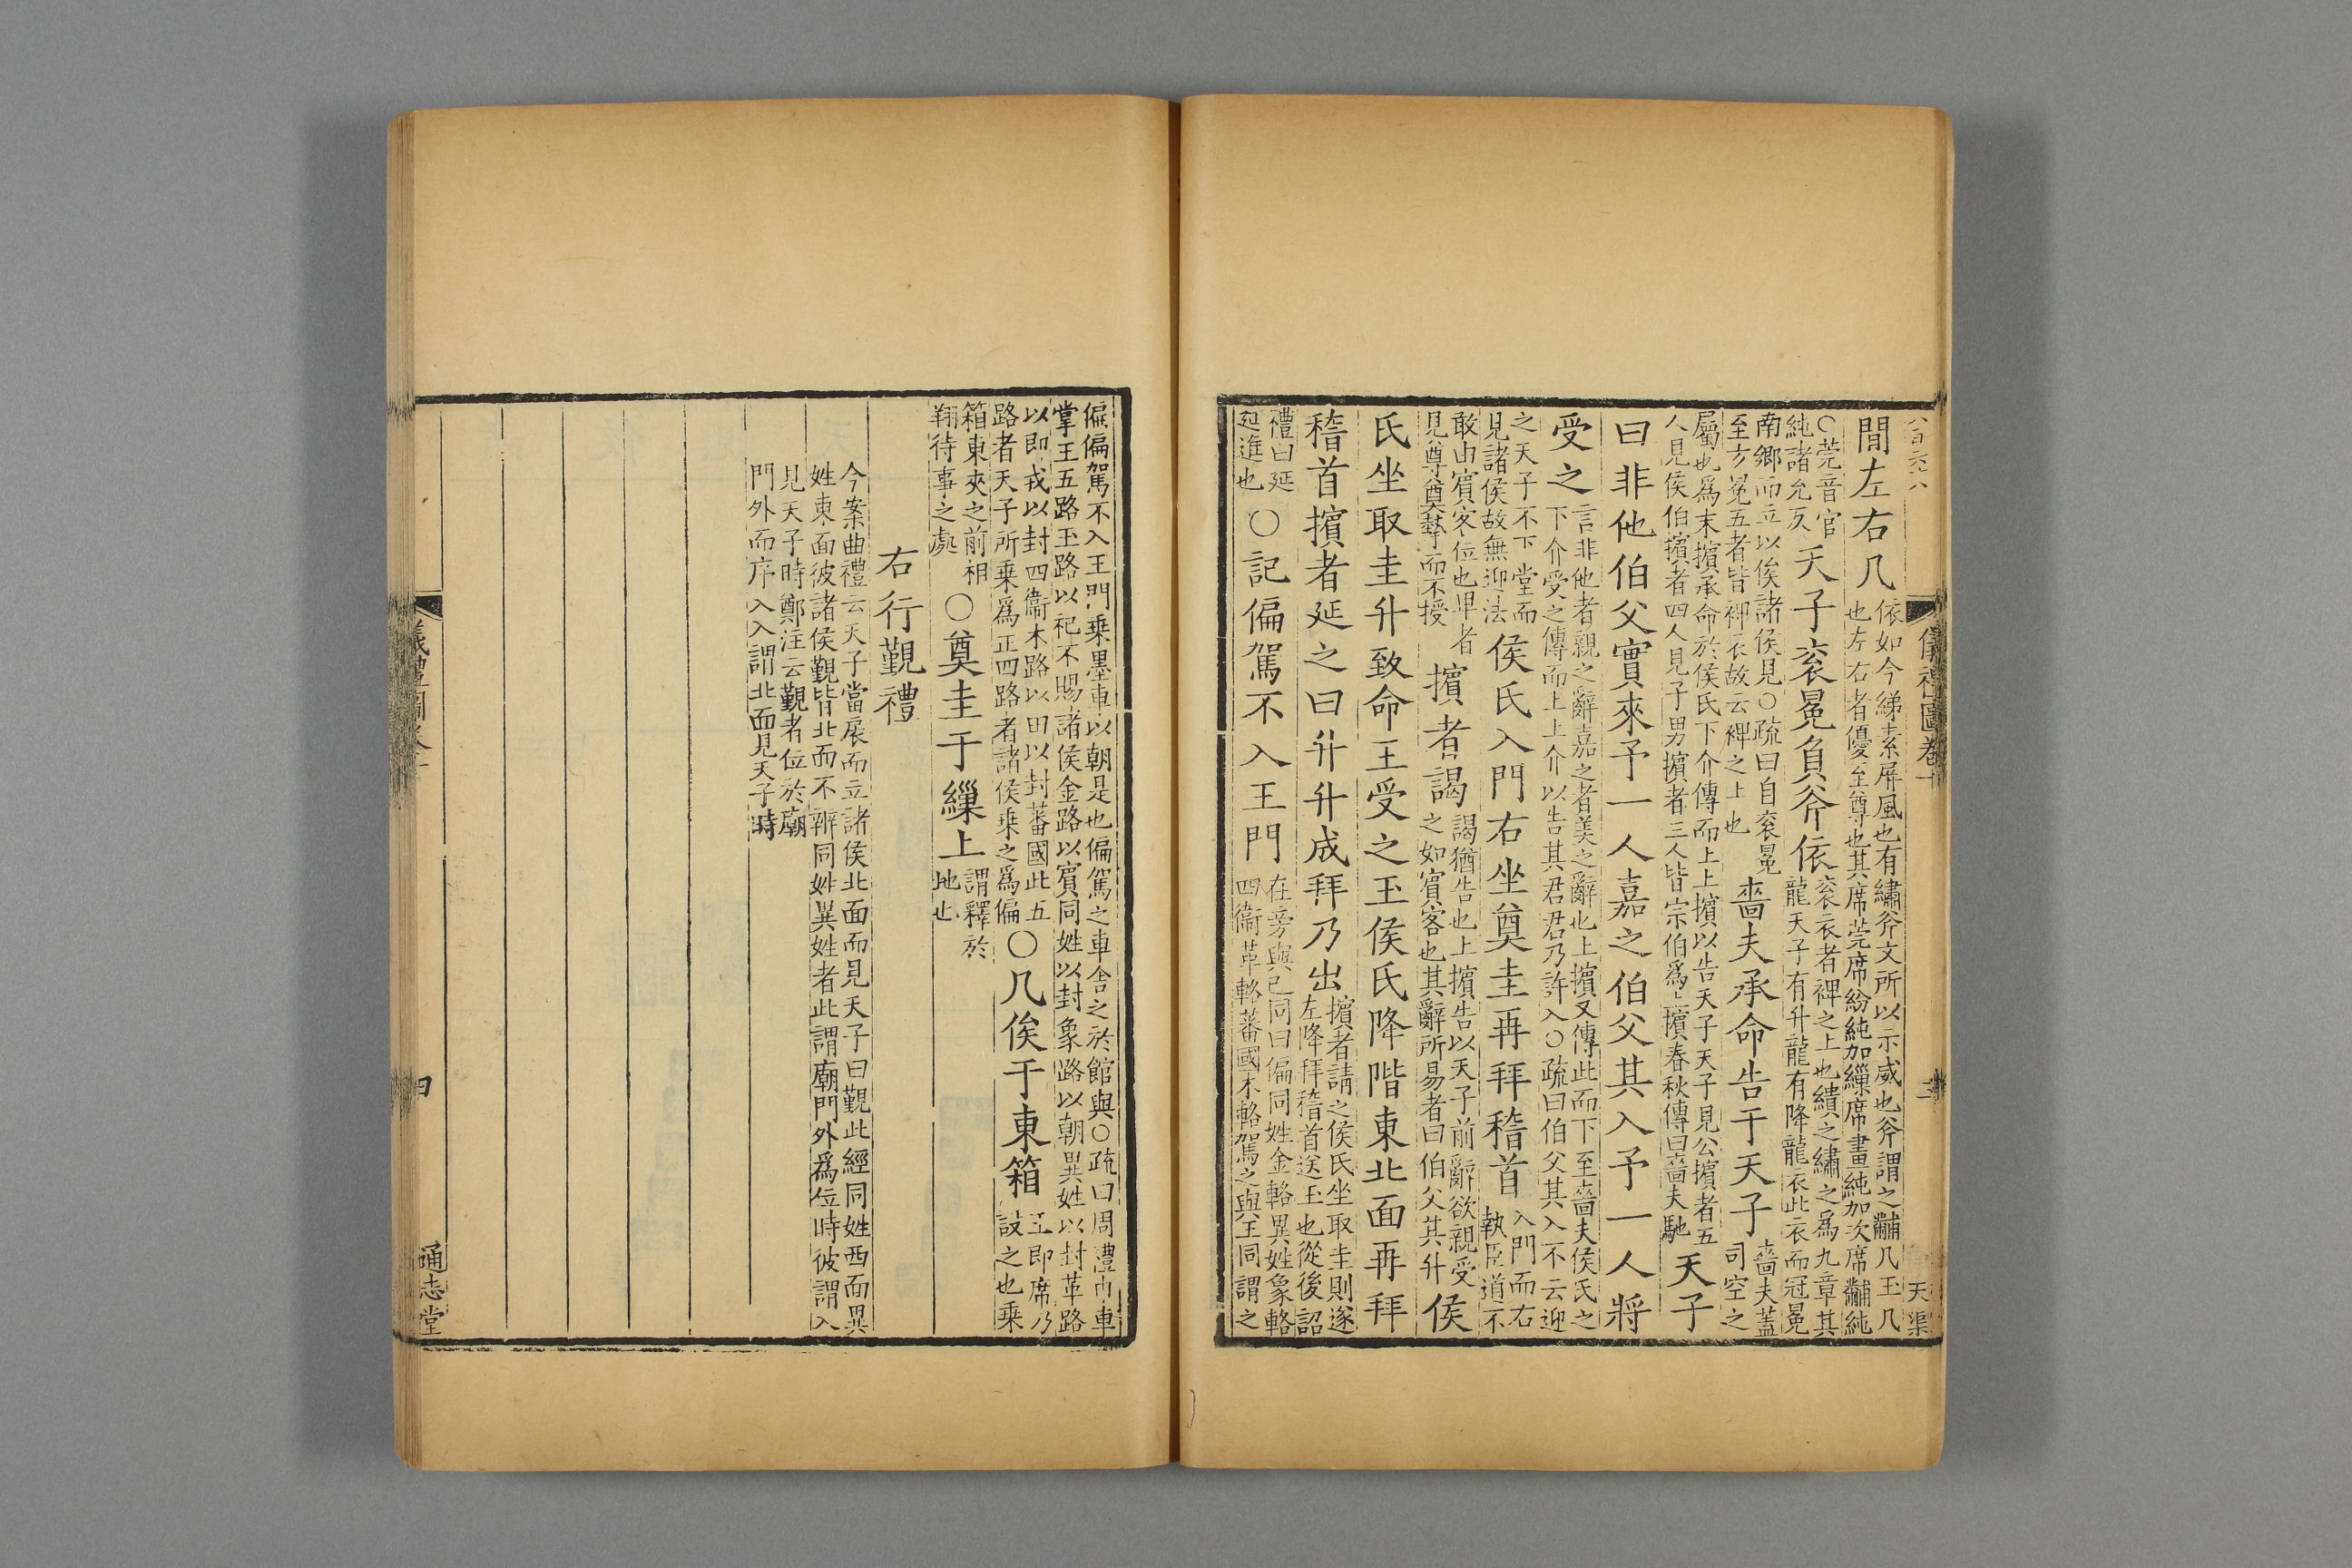 儀禮圖卷十
天渠
間左右几
依如今綈素屏風也有繡斧文所以示威也斧謂之黼几玉几
也左右者優至尊也其席莞席紛純加繅席畫純加次席黼純
○莞音官
純諸允反
天子衮冕負斧依
衮衣者裨之上也繢之繡之爲九章其
龍天子有升龍有降龍衣此衣而冠冕
南鄉而立以俟諸侯見○疏曰自衮冕
至玄冕五者皆裨衣故云裨之上也
嗇夫承命告于天子
嗇夫蓋
司空之
屬也爲末擯承命於侯氏下介傳而上上擯以告天子天子見公擯者五
人見侯伯擯者四人見子男擯者三人皆宗伯爲上擯春秋傳曰嗇夫馳
天子
曰非他伯父實來予一人嘉之伯父其入予一人將
受之
言非他者親之辭嘉之者美之辭也上擯又傳此而下至嗇夫侯氏之
下介受之傳而上上介以告其君君乃許入○疏曰伯父其入不云迎
之天子不下堂而
見諸侯故無迎法
侯氏入門右坐奠圭再拜稽首
入門而右
執臣道不
敢由賓客位也卑者
見尊奠摯而不授
擯者謁
謁猶告也上擯告以天子前辭欲親受
之如賓客也其辭所易者曰伯父其升
侯
氏坐取圭升致命王受之玉侯氏降階東北面再拜
稽首擯者延之曰升升成拜乃出
擯者請之侯氏坐取圭則遂
左降拜稽首送玉也從後詔
禮曰延
延進也
○記偏駕不入王門
在旁與已同曰偏同姓金輅異姓象輅
四衞革輅蕃國木輅駕之與王同謂之
偏偏駕不入王門乗墨車以朝是也偏駕之車舎之於館與○疏曰周禮巾車
掌王五路玉路以祀不賜諸侯金路以賓同姓以封象路以朝異姓以封革路
以即戎以封四衞木路以田以封蕃國此五
路者天子所乗爲正四路者諸侯乗之爲偏
○几俟于東箱
王即席乃
設之也乗
箱東夾之前相
翔待事之處
○奠圭于繅上
謂釋於
地也
右行覲禮
今案曲禮云天子當扆而立諸侯北面而見天子曰覲此經同姓西面異
姓東面彼諸侯覲皆北面不辨同姓異姓者此謂廟門外爲位時彼謂入
見天子時鄭注云覲者位於廟
門外而序入入謂北面見天子時
四
通志堂